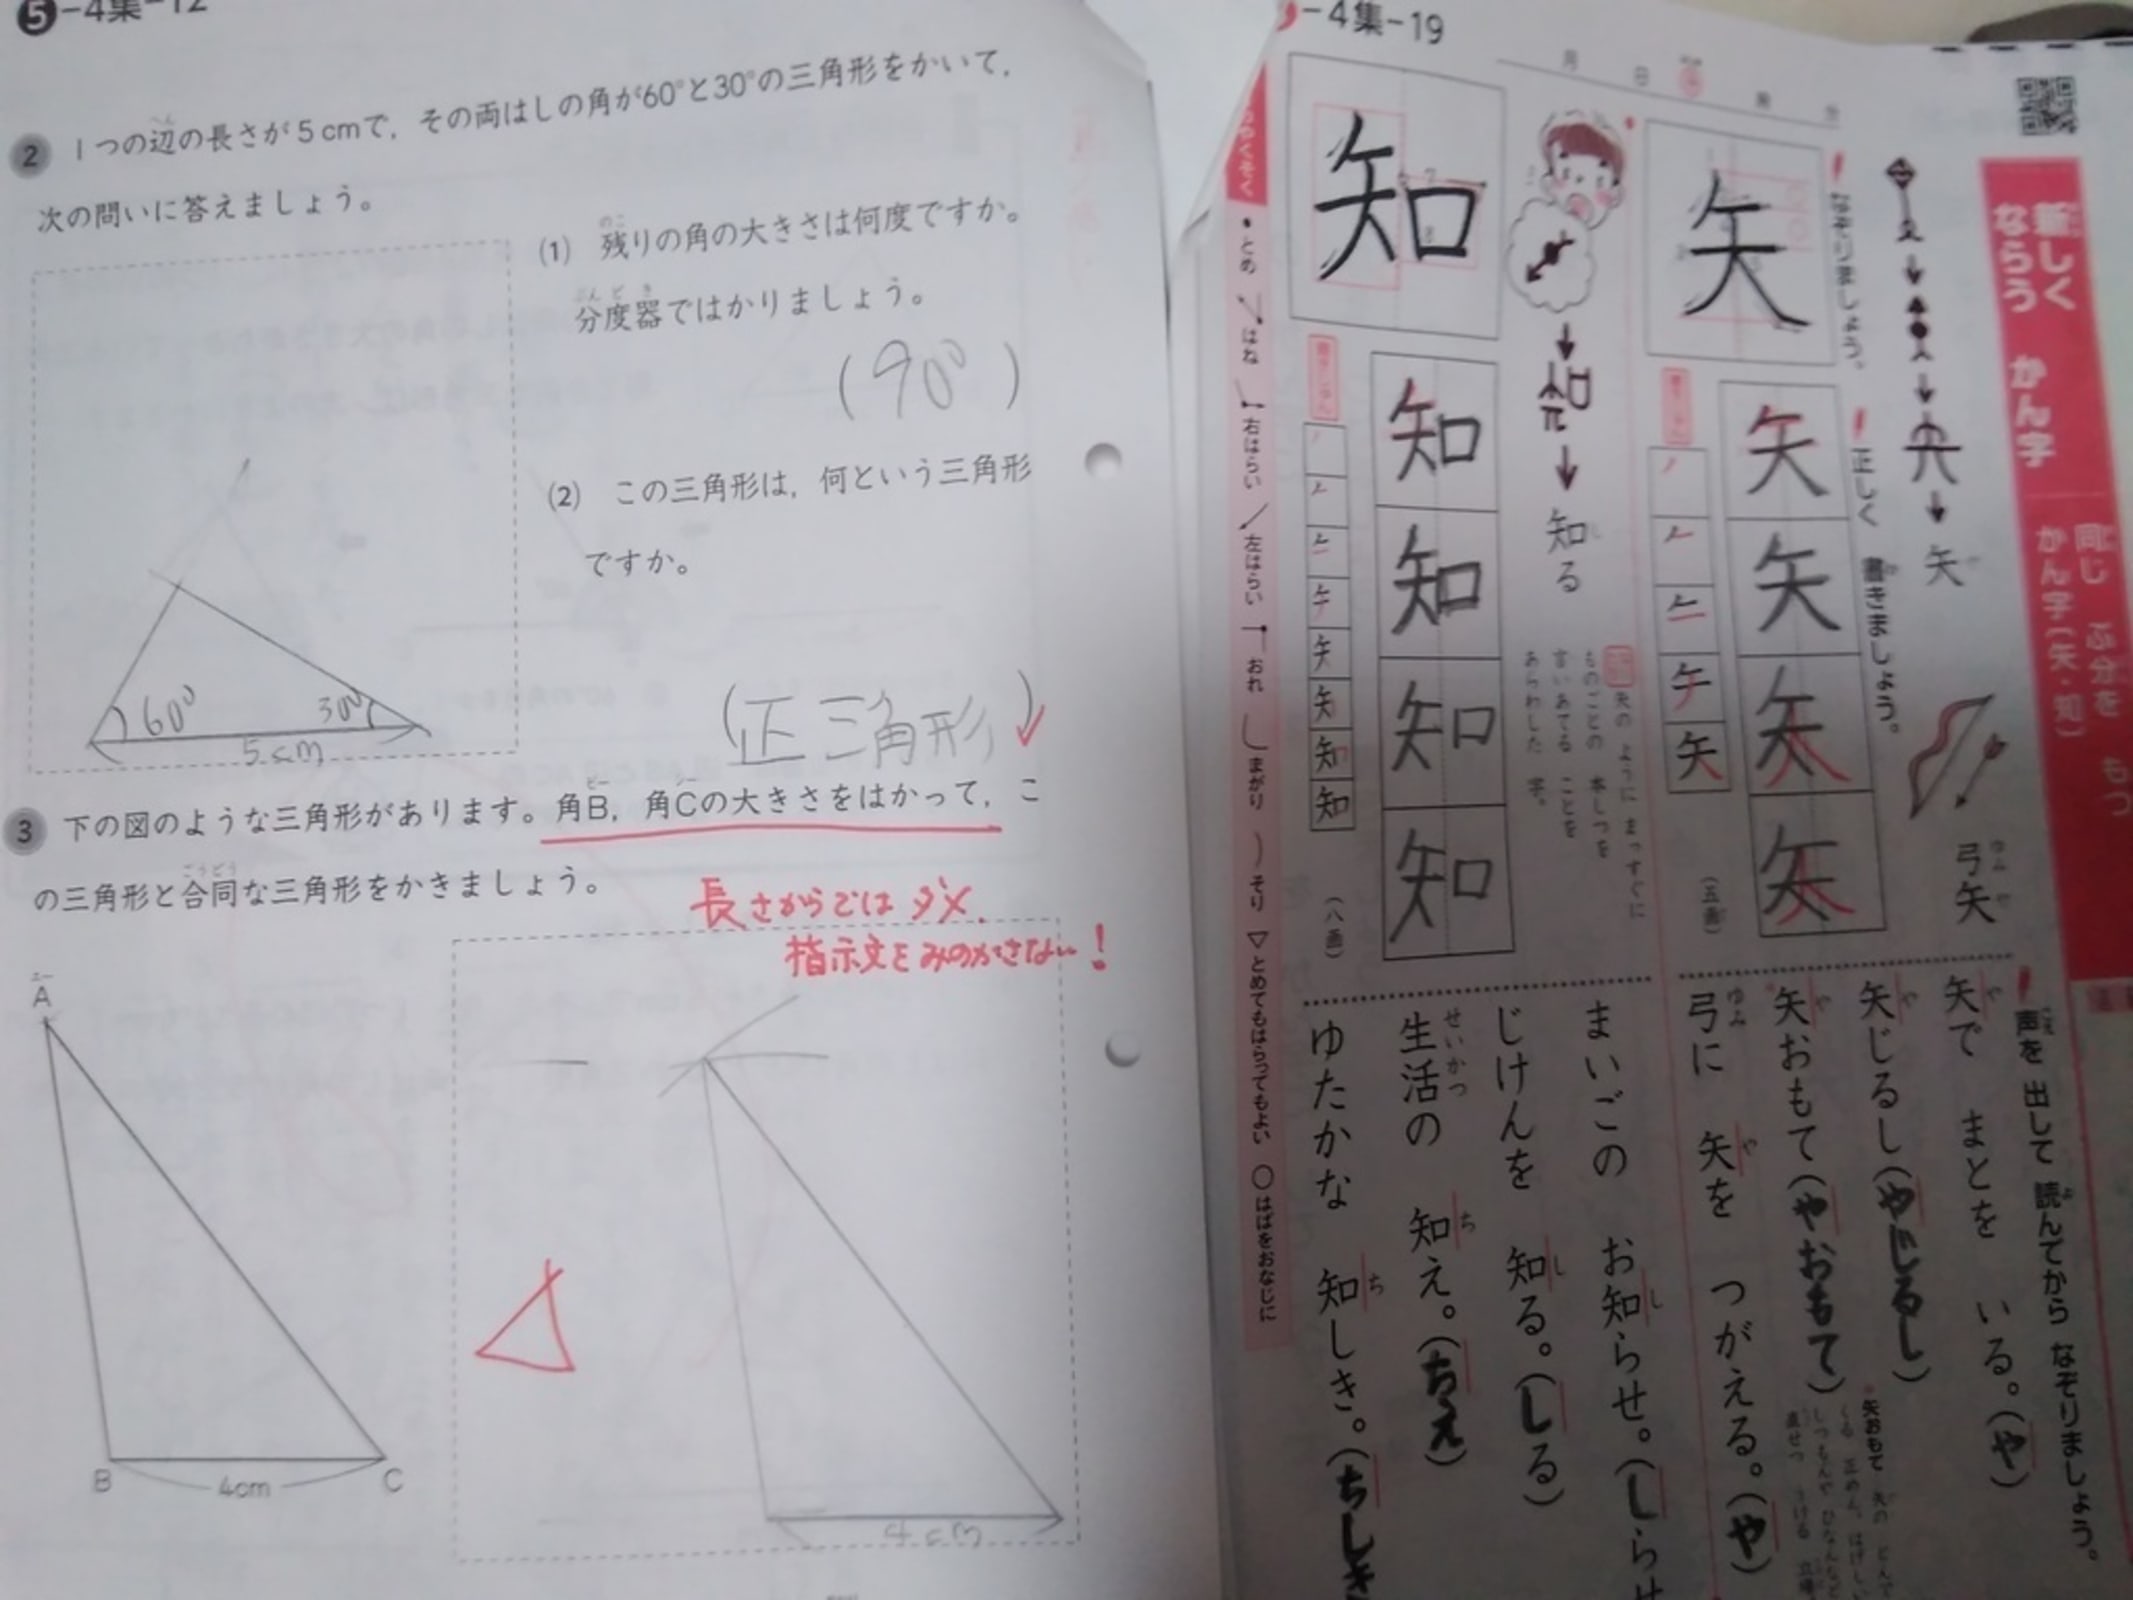 5-4集-12
2 1つの辺の長さが5cmで,その両はしの角が60°と30°の三角形をかいて,
次の問いに答えましょう。
(1) 残りの角の大きさは何度ですか。
分度器ではかりましょう。
(90°)
(2) この三角形は,何という三角形
ですか。
(正三角形)
60°
30°
5cm
3 下の図のような三角形があります。角B,角Cの大きさをはかって,こ
の三角形と合同な三角形をかきましょう。
長さからではダメ.
指示文をみのがさない!
A
B
C
4cm
4cm
-4集-19
月 日
新しく
ならう かん字
同じ ぶ分を もつ
かん字(矢・知)
矢
弓矢
なぞりましょう。
矢
正しく 書きましょう。
矢
矢
矢
矢
矢
(五画)
知る
矢の ように まっすぐに
ものごとの 本しつを
言いあてる ことを
あらわした 字。
知
知
知
知
知
知
(八画)
・とめ はね 右はらい 左はらい おれ まがり そり ▽とめてもはらってもよい ○はばをおなじに
声を 出して 読んでから なぞりましょう。
矢で まとを いる。(や)
矢じるし(やじるし)
矢おもて(やおもて)
弓に 矢を つがえる。(や)
まいごの お知らせ。(しらせ
じけんを 知る。(しる)
生活の 知え。(ちえ)
ゆたかな 知しき。(ちしき